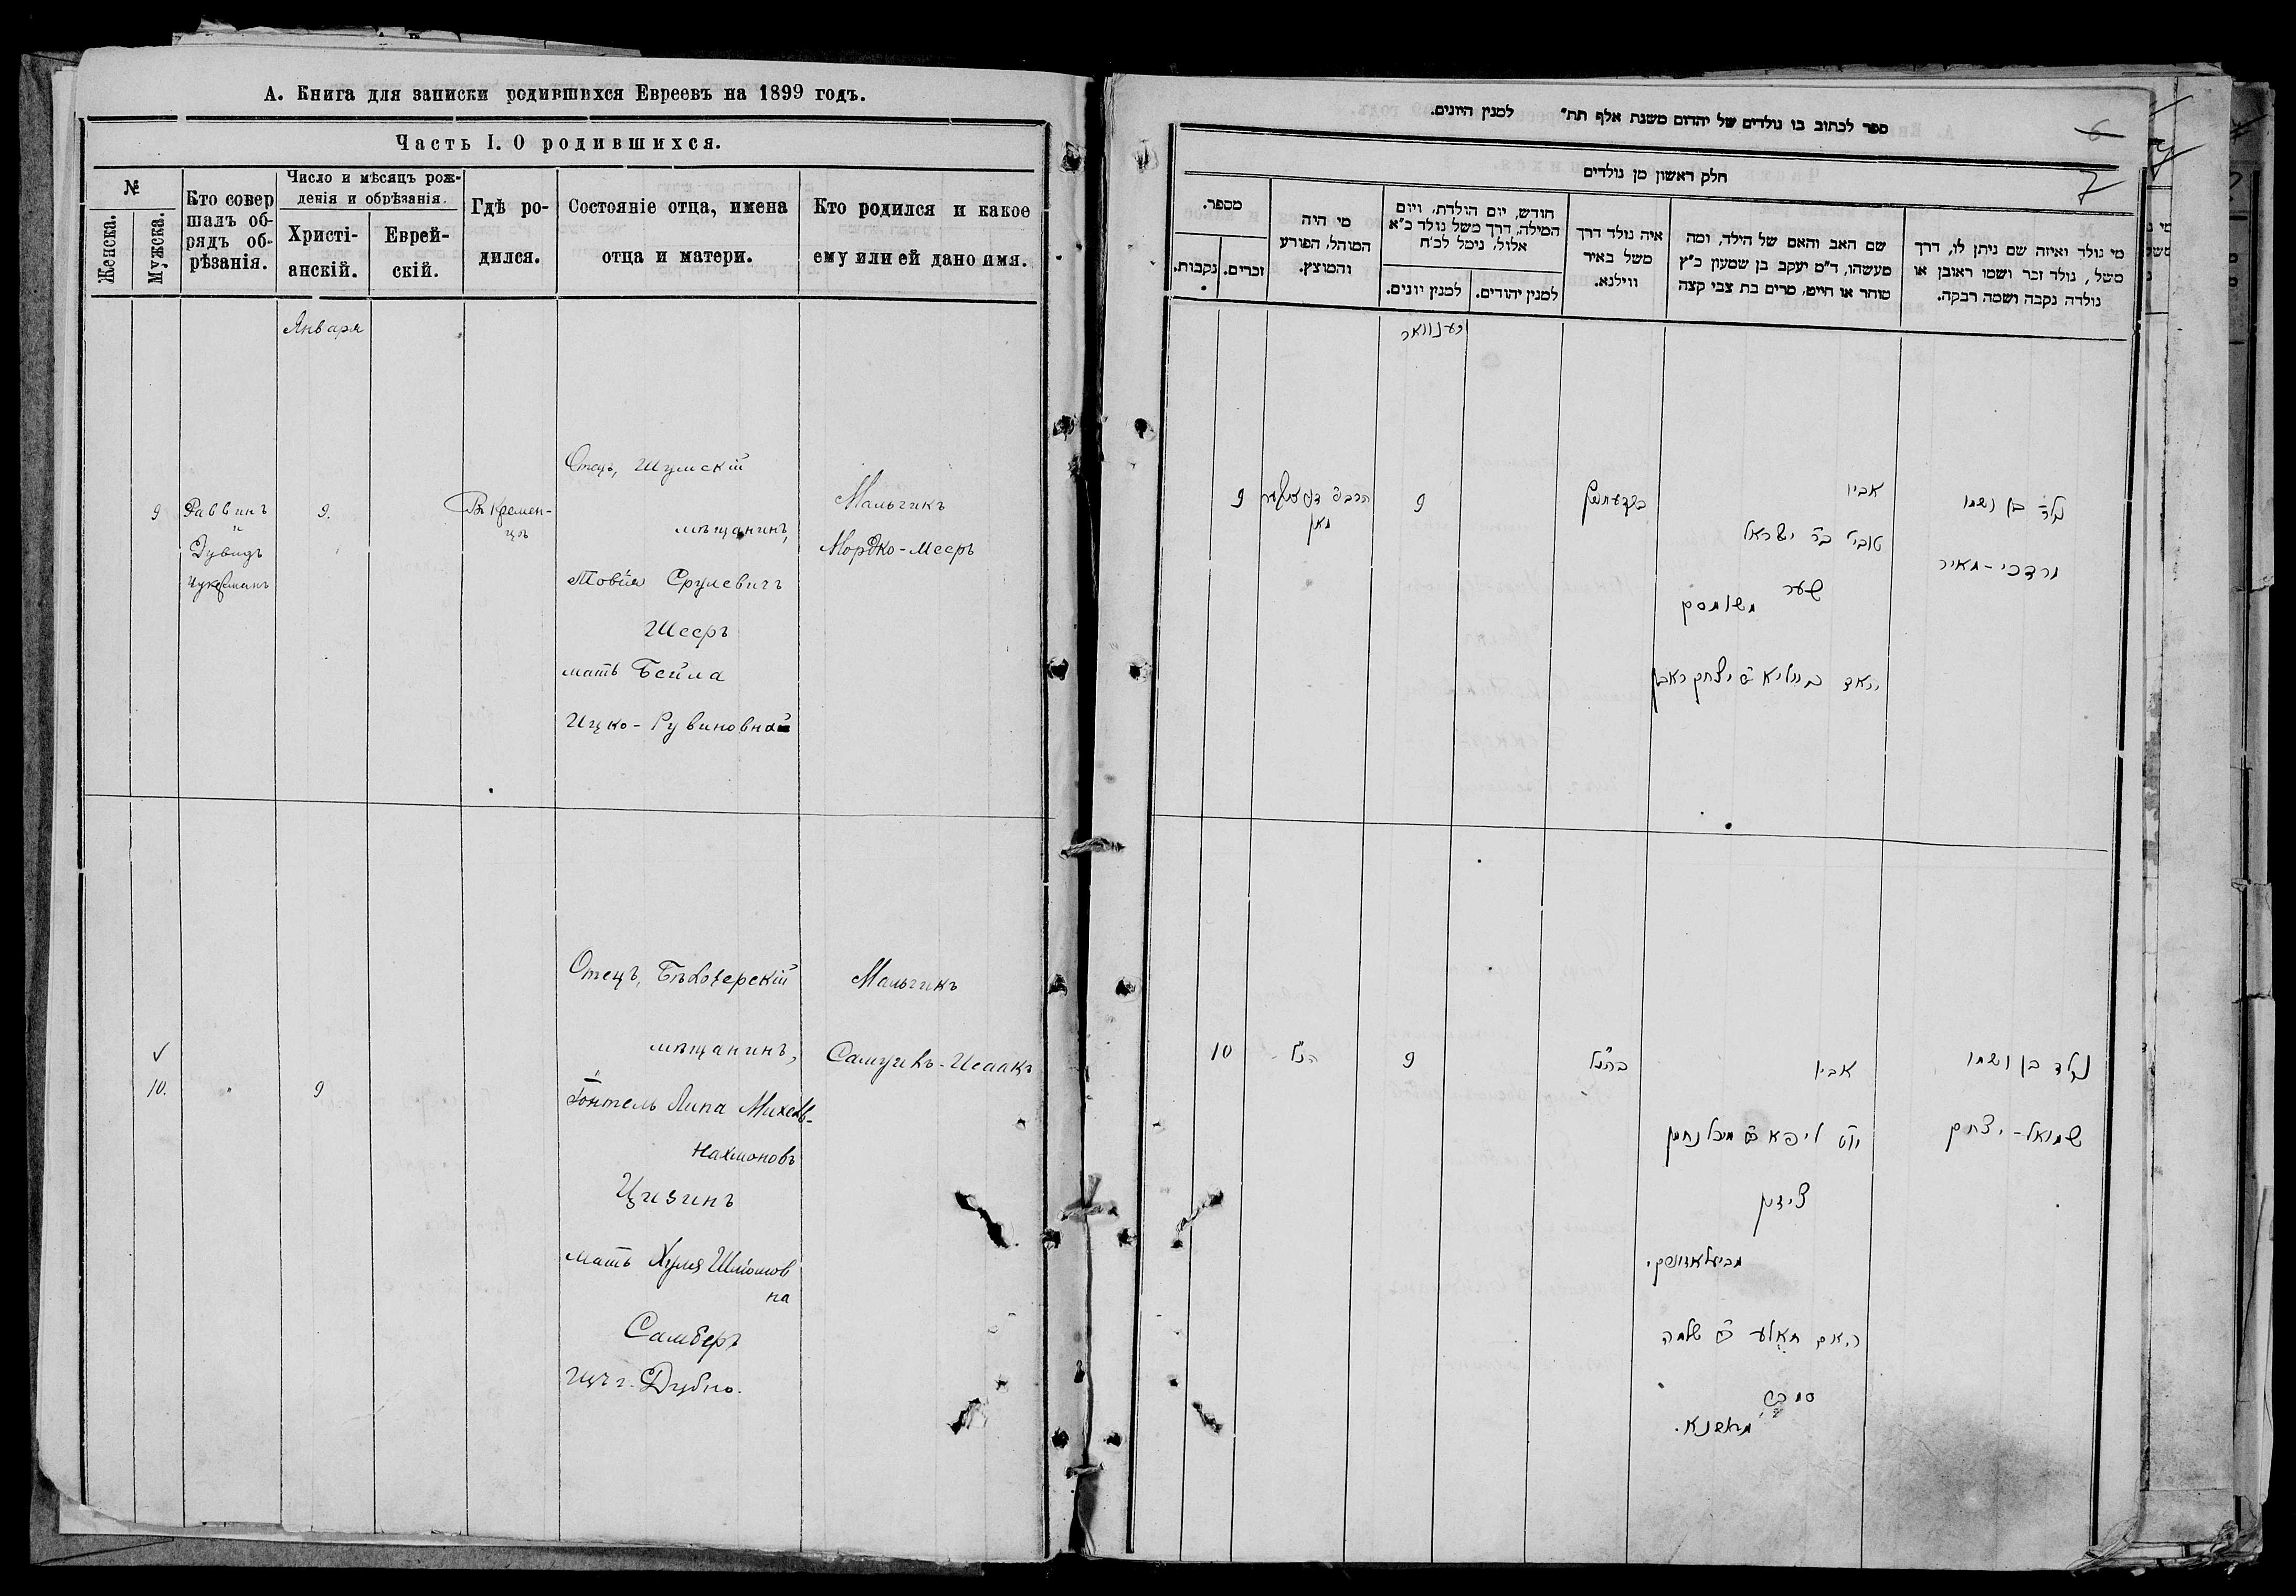 А. Книга для записки родившихся Евреевъ на 1899 годъ.
Часть I. О родившихся.
№
Женска.
Мужска.
Кто совер
шалъ об-
рядъ об-
рѣзанія.
Число и мѣсяцъ рож-
денія и обрѣзанія.
Христі-
анскій.
Еврей-
скій.
Гдѣ ро-
дился.
Состояніе отца, имена
отца и матери.
Кто родился и какое
ему или ей дано имя.
Января
9
Раввинъ
и
Дувидъ
Цукерманъ
9.
Въ Кремен-
цѣ
Отецъ, Шумскій
мѣщанинъ,
Товія Срулевичъ
Шееръ
мать Бейла
Ицко-Рувиновна
Мальчикъ
Мордко-Мееръ
10.
"
9
Отецъ, Бѣлозерскій
мѣщанинъ,
Липа Михель-
Нахмановъ
Цизинъ
мать Хуля Шліомов
на
Самберъ
г. Дубно.
Мальчикъ
Самуилъ-Исаакъ
ספר לכתוב בו נולדים של יהדום משנת אלף תת״ למנין היונים.
6
7
חלק ראשון מן נולדים
מספר.
נקבות.
זכרים.
מי היה
המוהל, הפורע
והמוצץ.
חודש, יום הולדת, ויום
המילה, דרך משל נולד כ״א
אלול, נימל לכ״ח
למנין יונים.
למנין יהודים.
איה נולד דרך
משל באיר
ווילנא.
שם האב והאם של הילד, ומה
מעשהו, ד״מ יעקב בן שמעון כ״ץ
סוחר או חייט, מרים בת צבי קצה
מי נולד ואיזה שם ניתן לו, דרך
משל, נולד זכר ושמו ראובן או
נולדה נקבה ושמה רבקה.
יענוואר
9
9
אביו
טובי׳ ב״ר ישראל
שער
משומסק
נולד בן ושמו
מרדכי-מאיר
10
הנ״ל
9
כהנ״ל
אביו
צידק
האם חאלע שלמה
נולד בן ושמו
שמואל-יצחק